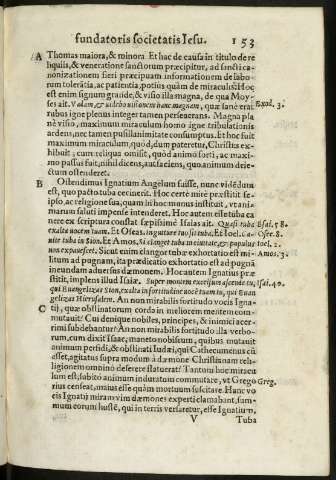 fundatoris societatis Iesu. 153
A Thomas maiora, & minora Et hac de causa in titulo de re
liquiis, & veneratione sanctorum præcipitur, ad sancti ca-
nonizationem fieri præcipuam informationem de labo-
rum tolerãtia, ac patientia, potius quàm de miraculis: Hoc
est enim signum grande, & visio illa magna, de qua Moy-
ses ait. Vadam, & videbo visionem hanc magnam, quæ sanè erat Exod. 3.
rubus igne plenus integer tamen perseuerans. Magna pla
nè visio, maximum miraculum homo igne tribulationis
ardens, nec tamen pusillanimitate consumptus. Et hoc fuit
maximum miraculum, quod, dum pateretur, Christus ex-
hibuit; cum reliqua omisit, quòd animo forti, ac maxi-
mo passus fuit, nihil dicens, aut faciens, quo animum deie-
ctum ostenderet.
B Ostendimus Ignatium Angelum fuisse, nunc vidẽdum
est, quo pacto tuba cecinerit. Hoc certè mirè præstitit se
ipso, ac religione sua, quam hi hoc munus instituit, vt ani-
marum saluti impensè intenderet. Hoc autem esse tuba ca
nere ex scriptura constat sæpissimè Isaias ait. Quasi tuba Esai. 58.
exalta vocem tuam. Et Oseas. in gutture tuo sit tuba, Et Ioel. Ca- Oser. 8.
nite tuba in Sion. Et Amos. Si clanget tuba in ciuitate, & populus Ioel. 2.
non expauescet. Sicut enim clangor tubæ exhortatio est mi- Amos. 3.
litum ad pugnam, ita prædicatio exhortatio est ad pugnã
ineundam aduersus dæmonem. Hoc autem Ignatius præ
stitit, implens illud Isaiæ. Super montem excelsum ascende tu, Esai. 40.
qui Euangelizas Sion, exalta in fortitudine vocẽ tuam tu, qui Euan
gelizas Hierusalem. An non mirabilis fortitudo vocis Igna-
C tij, quæ obstinatorum corda in meliorem mentem com-
mutauit? Cui denique nobiles, principes, & inimici acer-
rimi subdebantur? An non mirabilis fortitudo illa verbo-
rum, cum dixit Isaac, maneto nobiscum, quibus mutauit
animum perfidi, & obstinati Iudæi, qui Cathecumenus cũ
esset, agitatus supra modum à dæmone Christianam reli-
gionem omninò deserere statuerat? Tantum hoc miracu
lum est, subitò animum induratum commutare, vt Grego Greg.
rius censeat, maius esse quàm mortuum suscitare. Hanc vo
cis Ignatij miram vim dæmones experti clamabant, sum-
mum eorum hostẽ, qui in terris versaretur, esse Ignatium,
V Tuba